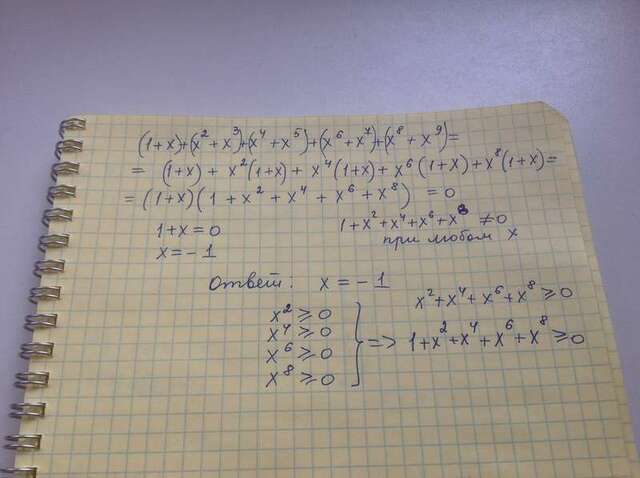 (1+x)+(x²+x³)+(x⁴+x⁵)+(x⁶+x⁷)+(x⁸+x⁹)=
= (1+x) + x²(1+x) + x⁴(1+x) + x⁶(1+x) + x⁸(1+x) =
= (1+x)(1 + x² + x⁴ + x⁶ + x⁸) = 0
1+x = 0
1+x²+x⁴+x⁶+x⁸ ≠0
x = - 1
при любом x
Ответ: x = - 1
x²+x⁴+x⁶+x⁸ ≥ 0
x² ≥ 0
x⁴ ≥ 0
x⁶ ≥ 0
x⁸ ≥ 0
} => 1+x²+x⁴+x⁶+x⁸ ≥0